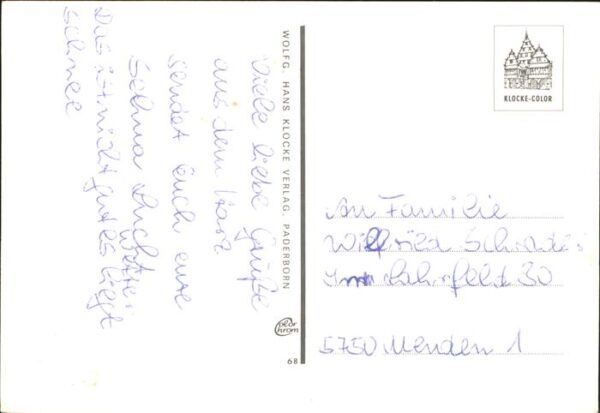 Viele liebe Grüße
aus dem Harz
sendet Euch eure
Selma
Das ist nicht gut es liegt
Schnee
WOLFG. HANS KLOCKE VERLAG, PADERBORN
KLOCKE-COLOR
color
chrom
68
An Familie
Wilfried Schrader
Im 30
5750 Menden 1